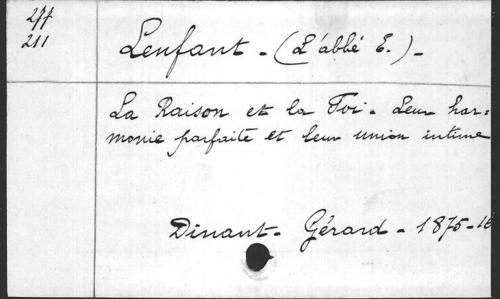 277
211
Lenfant - (L'abbé E.) -
La Raison et la Foi. Leur har=
monie parfaite et leur union intime
Dinant - Gérard - 1875-16